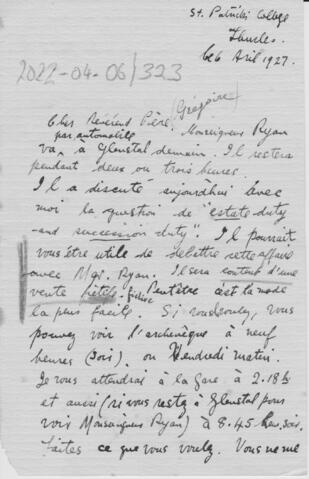 St. Patrick's College
Thurles.
le 6 Avril 1927.
2022-04-06/323
Cher Révérend Père, (Grégoire)
par automobile Monseigneur Ryan
va à Glenstal demain. Il restera
pendant deux ou trois heures.
Il a discuté aujourd'hui avec
moi la question de "estate duty
and succession duty". Il pourrait
vous être utile de débattre cette affaire
avec Mgr. Ryan. Il sera content d'une
vente fictive. Peut être est la mode
la plus facile. Si vous voulez, vous
pouvez voir l'archevêque à neuf
heures (soir). ou Vendredi matin.
Je vous attendrai à la gare à 2.18 h
et aussi (si vous restez à Glenstal pour
voir Monseigneur Ryan) à 8.45 heur. soir.
Faites ce que vous voulez. Vous ne me